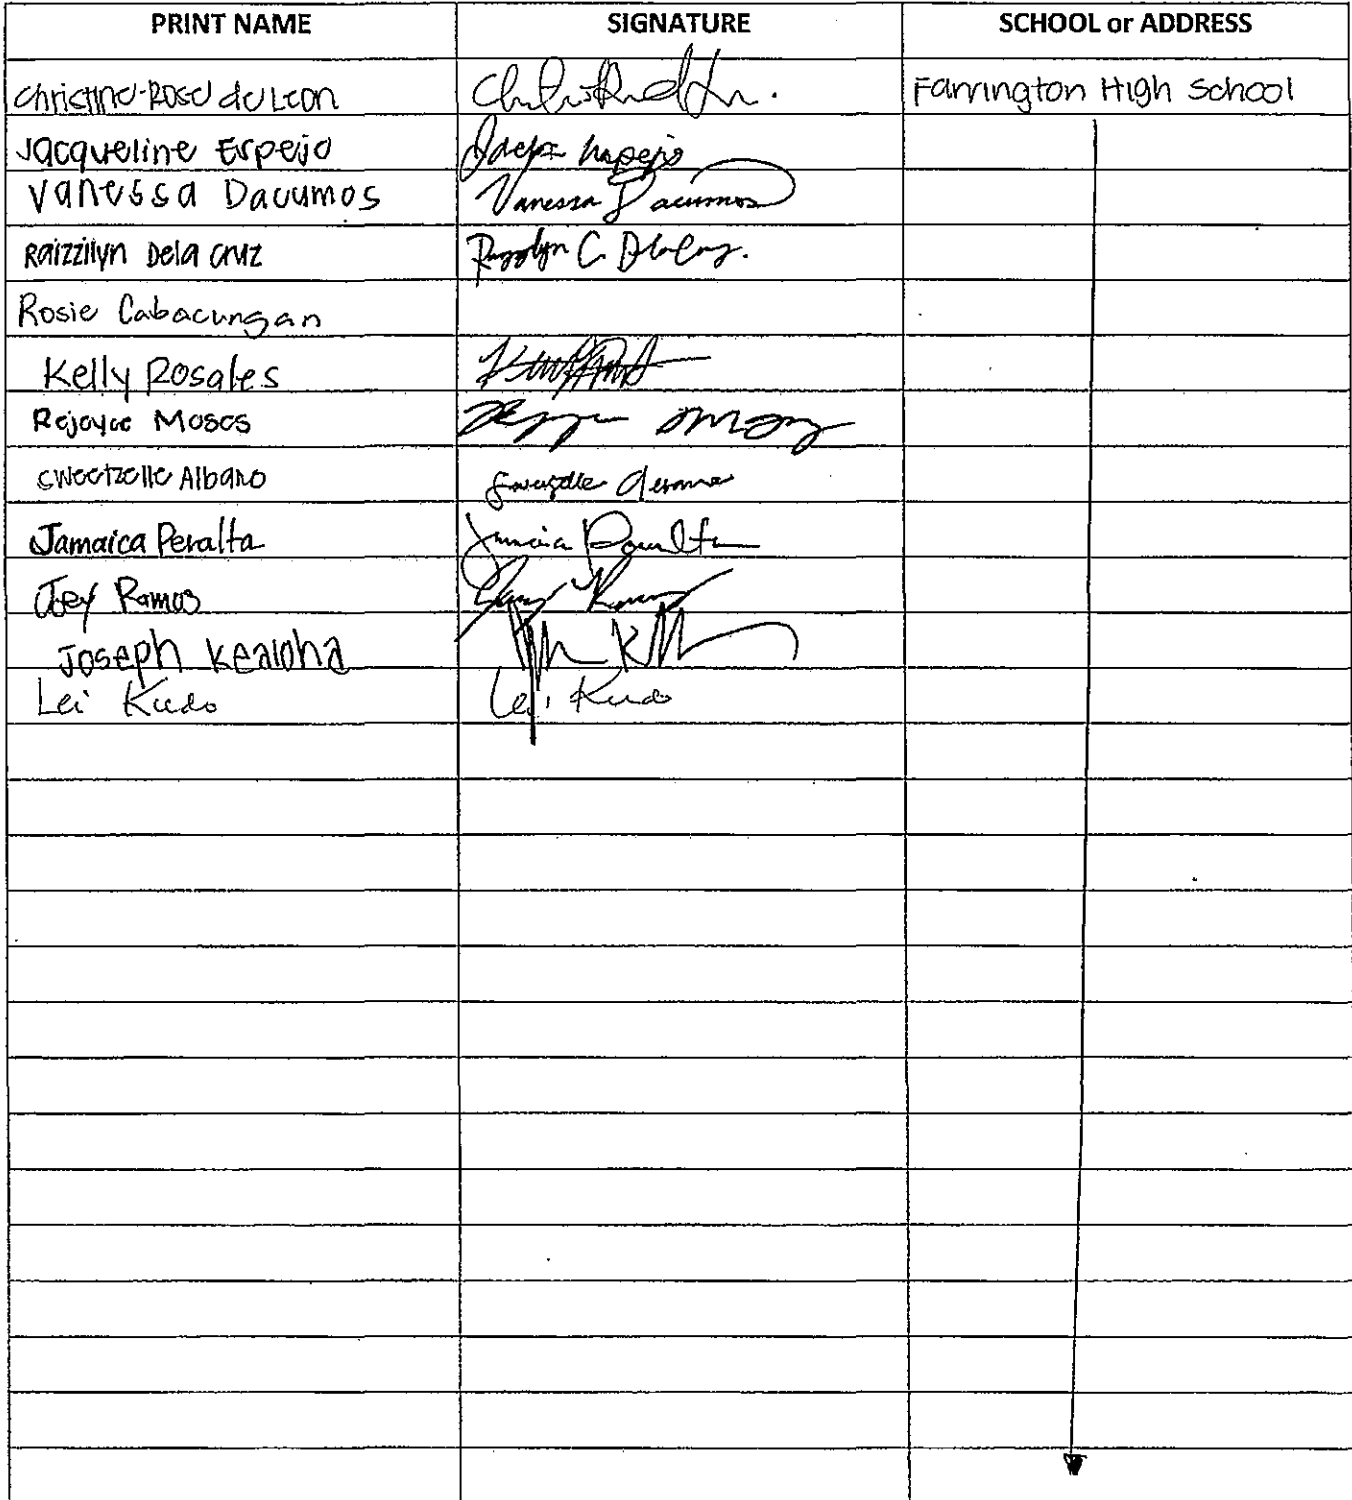 PRINT NAME SIGNATURE SCHOOL or ADDRESS
Christine-Rose de Leon Farrington High School
Jacqueline Espejo
Vanessa Dacumos Vanessa Dacumos
Raizzilyn Dela Cruz
Rosie Cabacungan
Kelly Rosales
Rejoyce Moses
Sweetzelle Albano
Jamaica Peralta Jamaica Peralta
Joey Ramos
Joseph Kealoha
Lei Kudo Lei Kudo